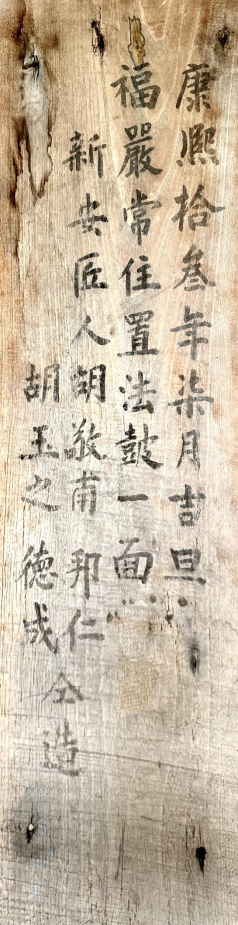 康熙拾叁年柒月吉旦
福嚴常住置法鼓一面
新安匠人胡敬甫 邦仁
胡玉之 德成
仝造